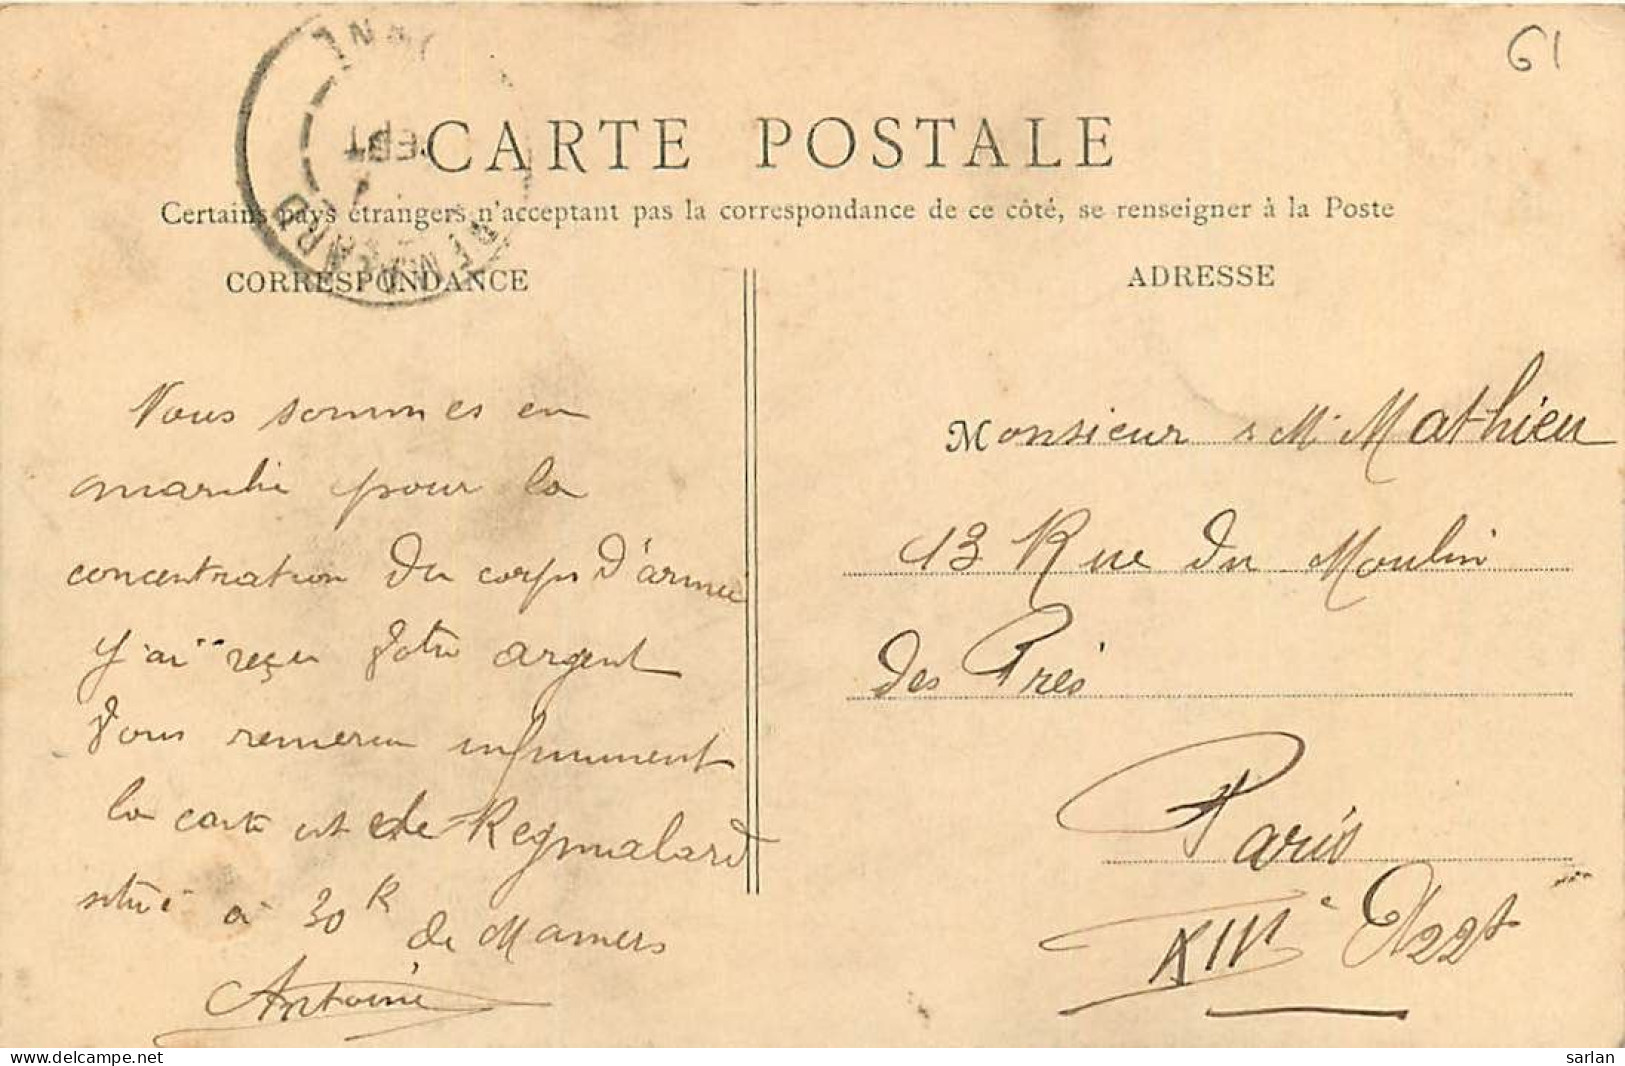 61
CARTE POSTALE
Certains pays étrangers n'acceptent pas la correspondance de ce côté, se renseigner à la Poste
CORRESPONDANCE
Nous sommes en
marche pour la
concentration du corps d'armée
J'ai reçu votre argent
Vous remercie infiniment
la carte est de Regmalard
située à 30 K de Mamers
Antoine
ADRESSE
Monsieur & Me Mathieu
13 Rue du Moulin
des Prés
Paris
XIIIe Arrt
SEPT
delcampe.net
sarlan